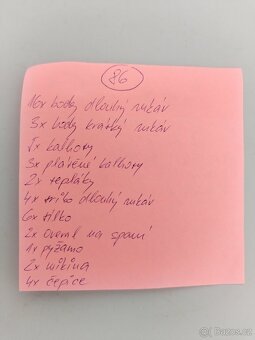 86
16x body dlouhý rukáv
3x body krátký rukáv
7x kalhoty
3x plátěné kalhoty
2x tepláky
4x triko dlouhý rukáv
6x tílko
2x overal na spaní
1x pyžamo
2x mikina
4x čepice
bazos.cz